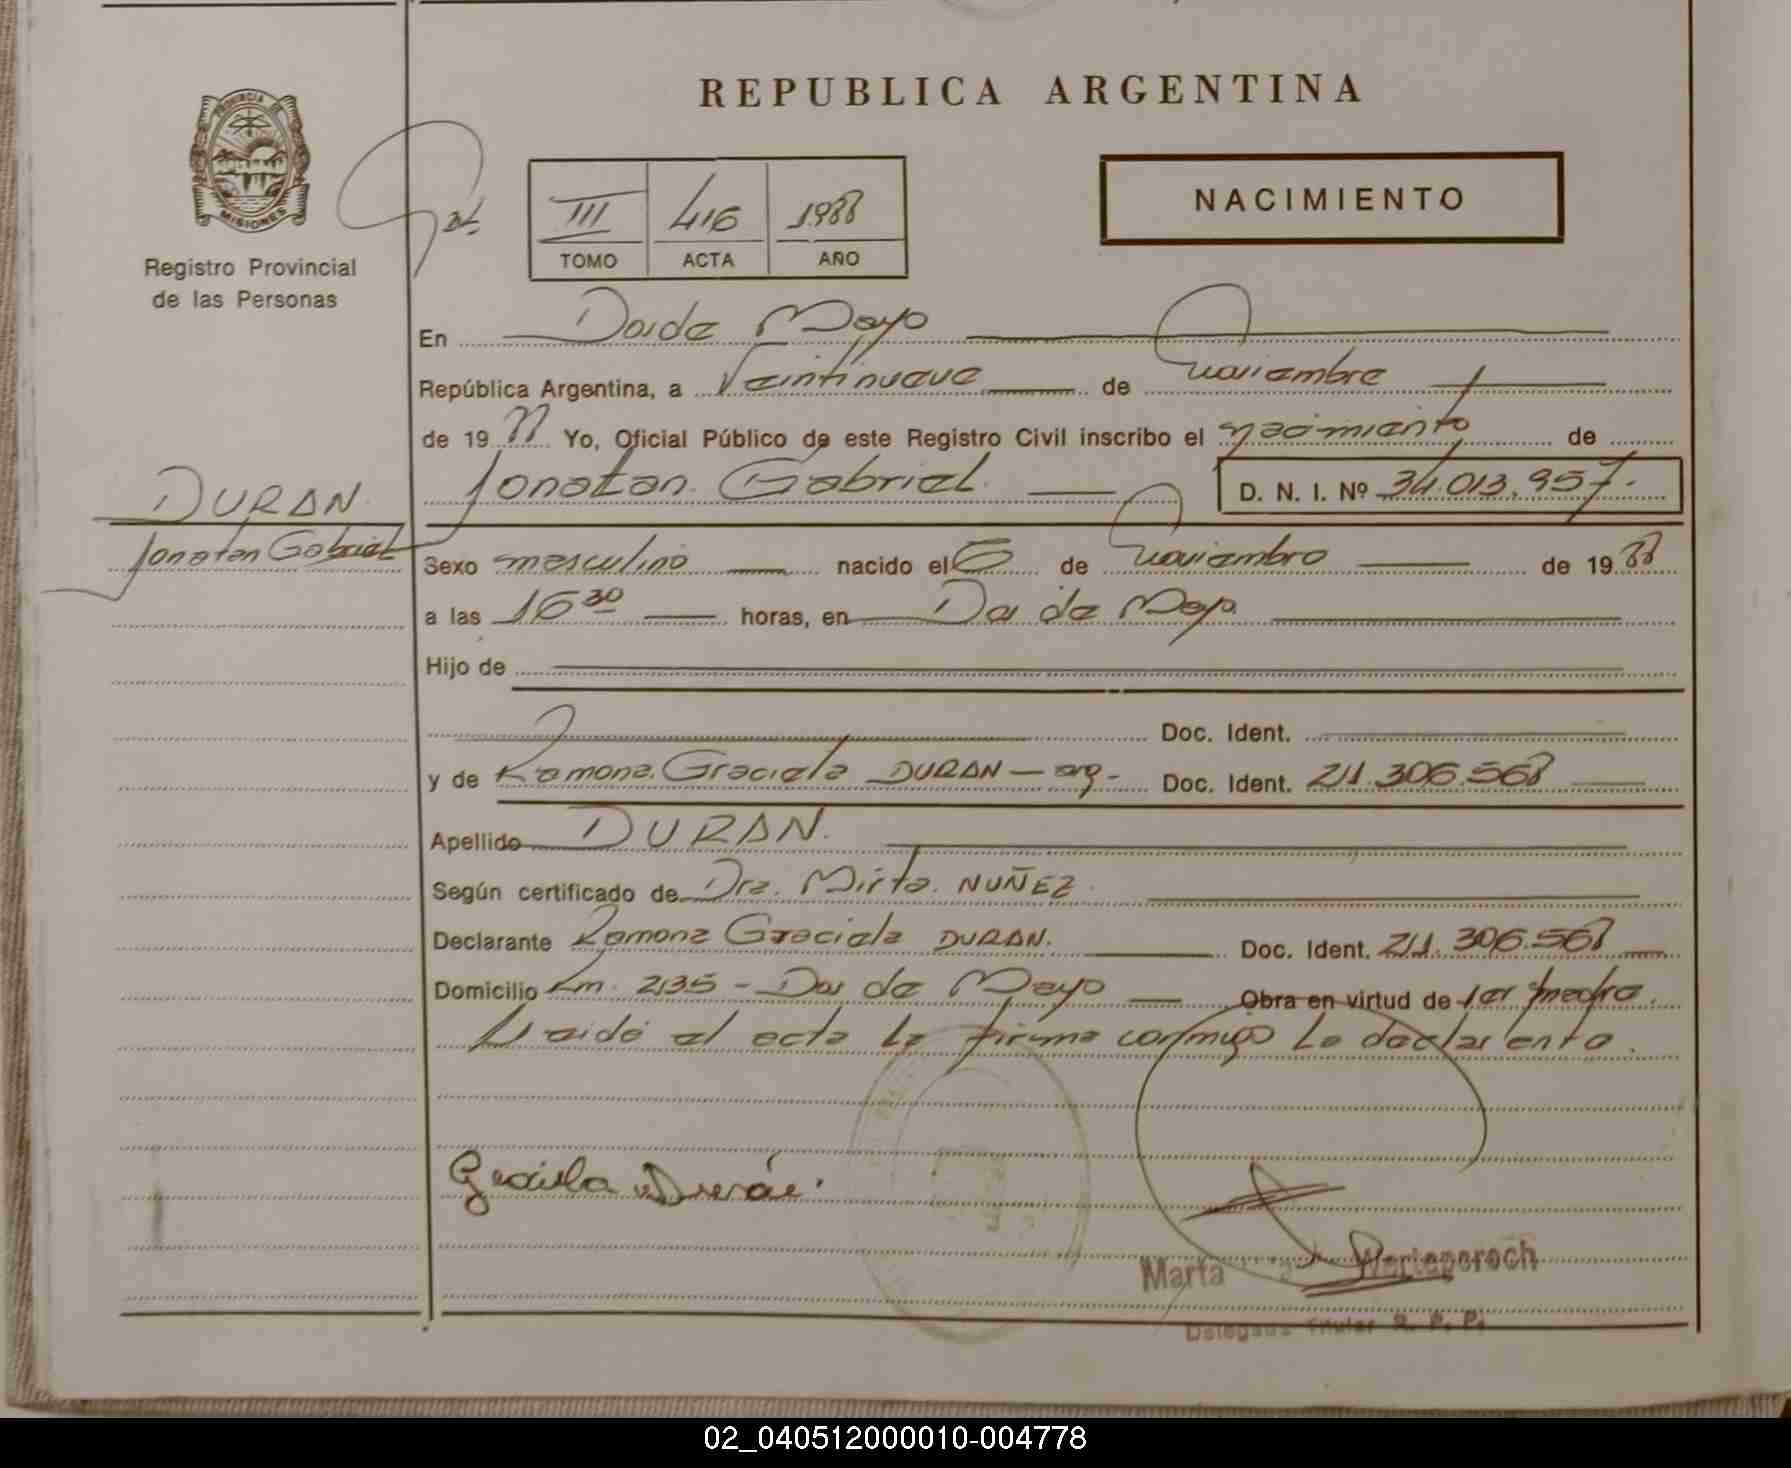 REPUBLICA ARGENTINA
PROVINCIA DE
MISIONES
Registro Provincial
de las Personas
III 416 1988
TOMO ACTA AÑO
NACIMIENTO
En Dos de Mayo
República Argentina, a Veintinueve de noviembre
de 19 Yo, Oficial Público de este Registro Civil inscribo el nacimiento de
DURAN
Jonatan Gabriel
Jonatan Gabriel D. N. I. Nº 34.013.957.
Sexo masculino nacido el 6 de noviembre de 1988
a las 16 30 horas, en Dos de Mayo
Hijo de
Doc. Ident.
y de Ramona Graciela DURAN - arg - Doc. Ident. 21.306.568
Apellido DURAN.
Según certificado de Dra. Mirta NUÑEZ.
Declarante Ramona Graciela DURAN. Doc. Ident. 21.306.568
Domicilio Km. 235 - Dos de Mayo Obra en virtud de ser madre.
Leida el acta la firma conmigo la declarante.
Graciela Durán.
Marta
Delegada Titular R. P. P.
02_040512000010-004778